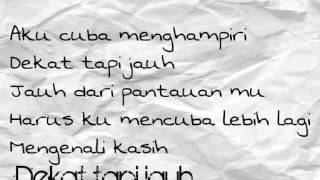 Aku cuba menghampiri
Dekat tapi jauh
Jauh dari pantauan mu
Harus ku mencuba lebih lagi
Mengenali kasih
Dekat tapi jauh